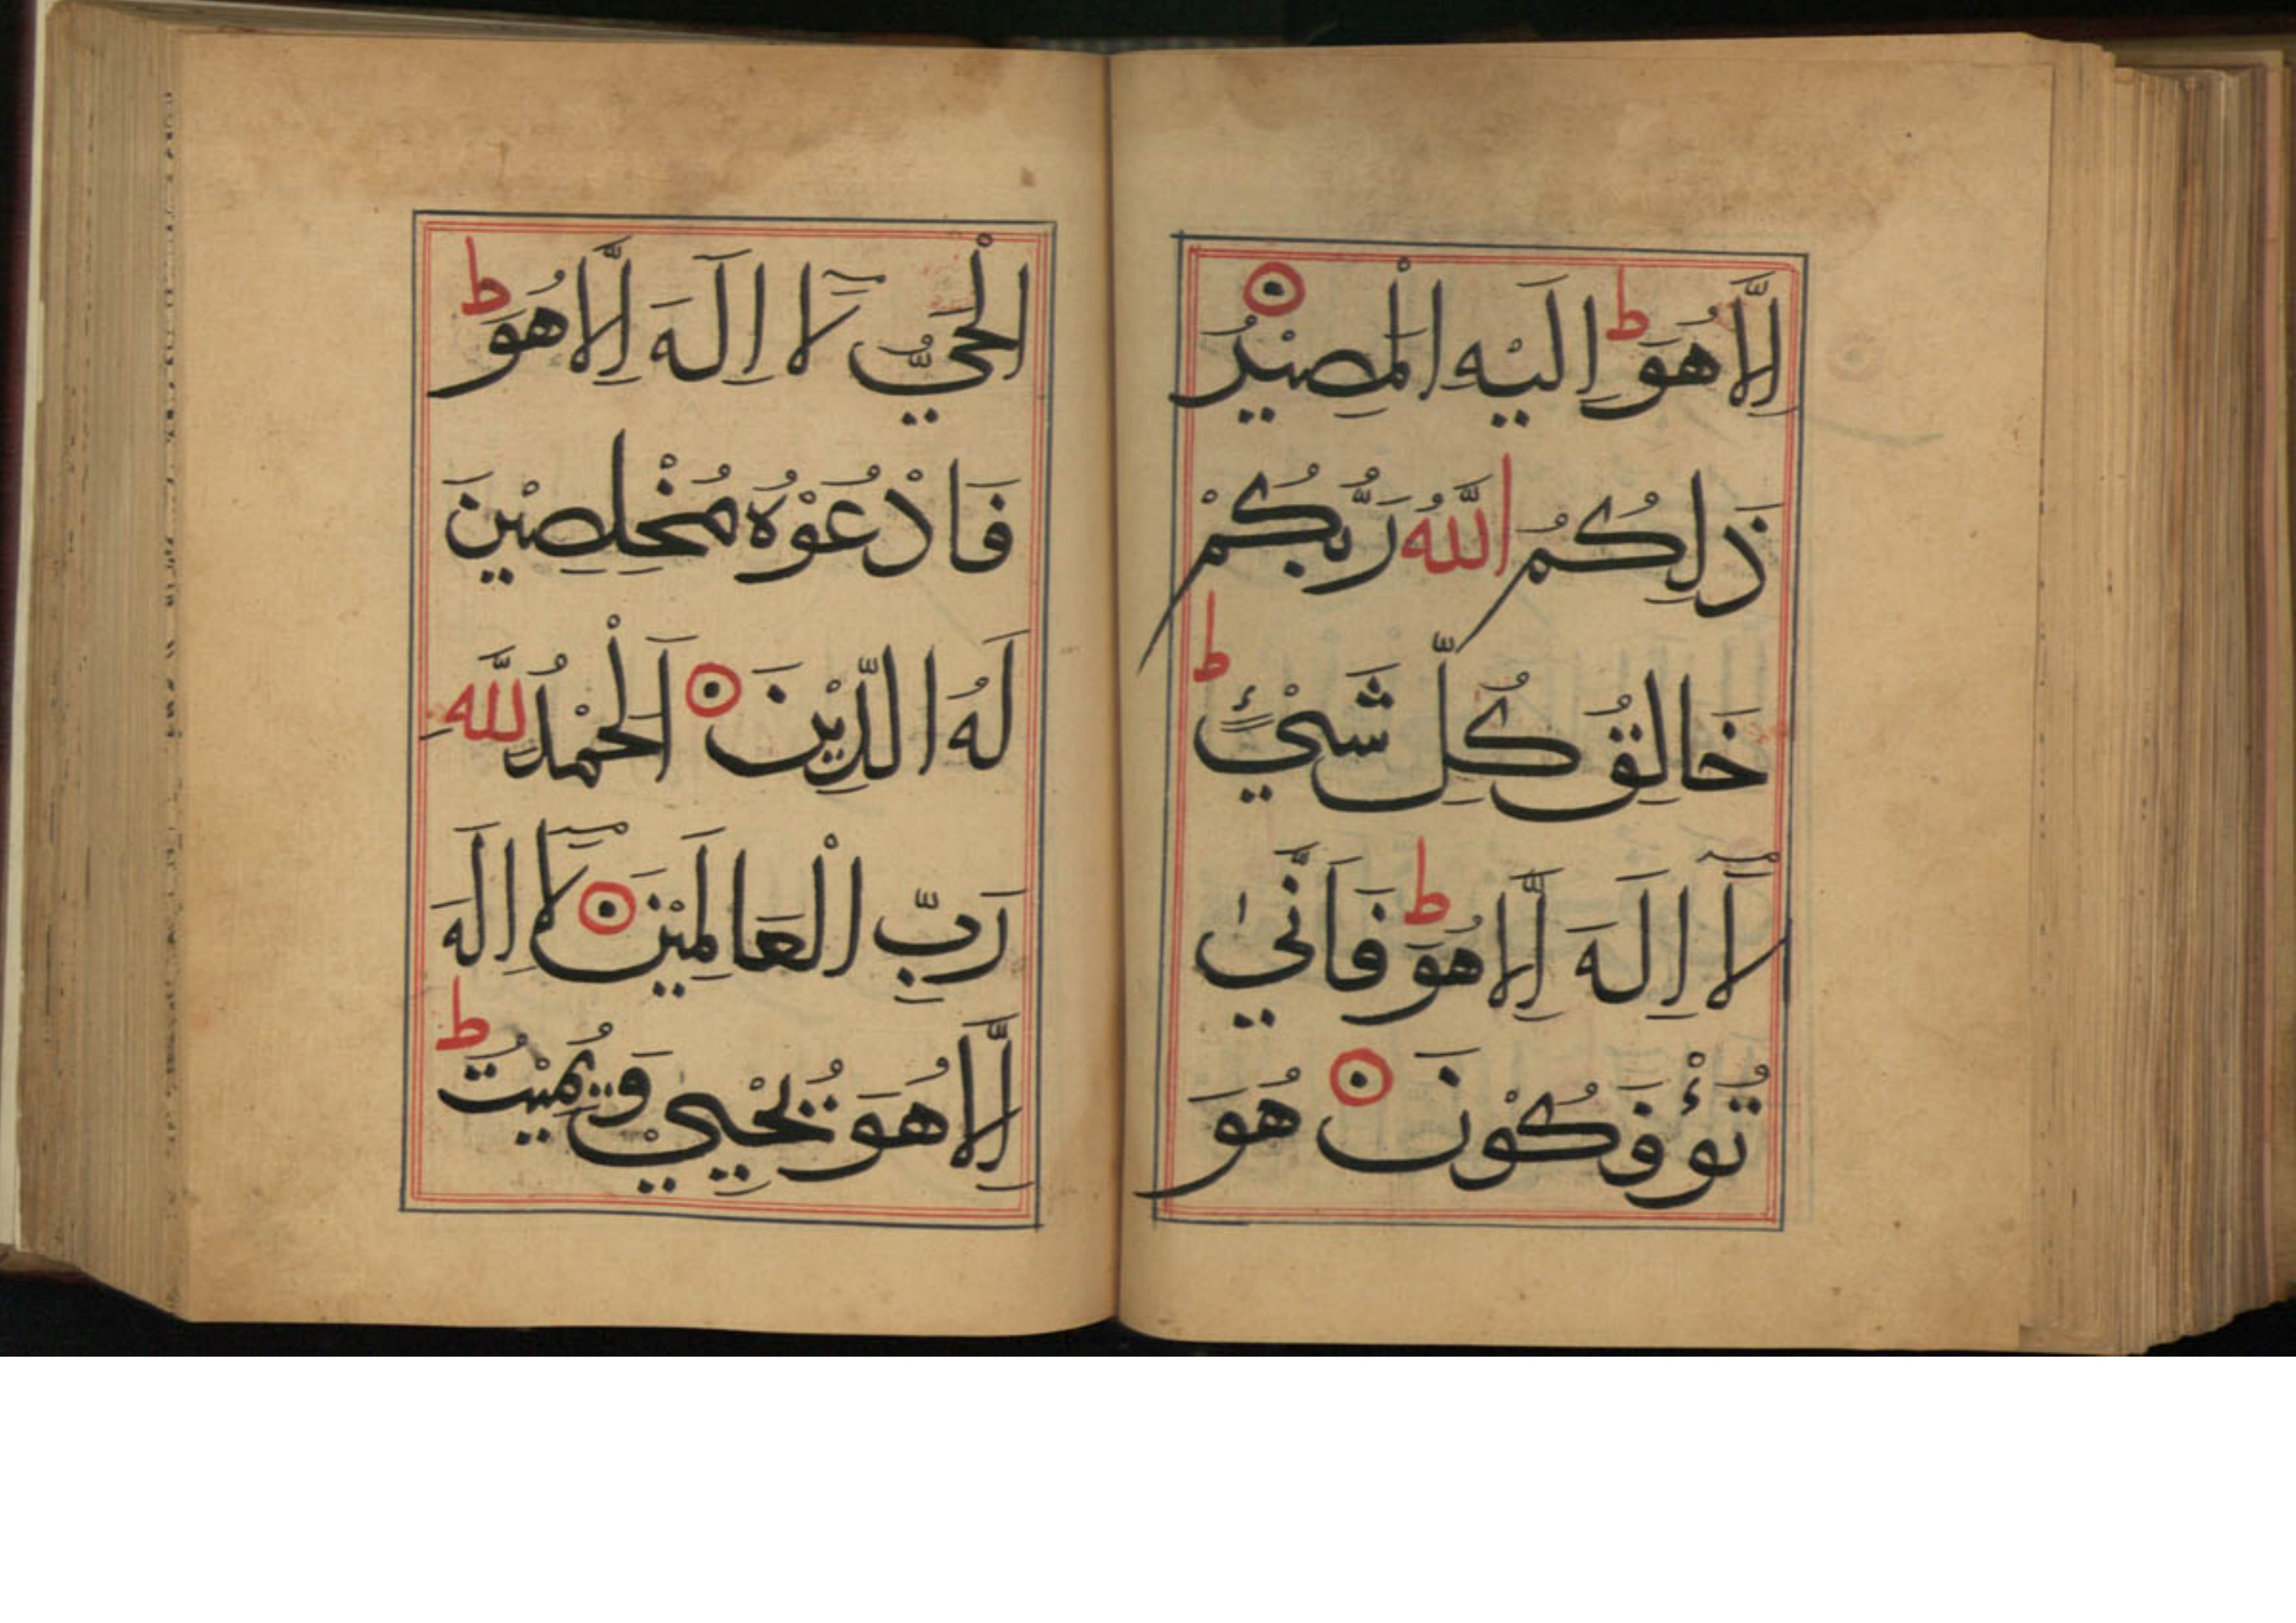 اِلَّا هُوَ ؕ اِلَيْهِ الْمَصِيْرُ
ذَلِكُمُ اللّٰهُ رَبُّكُمْ
خَالِقُ كُلِّ شَيْءٍ ؕ
لَآ اِلَهَ اِلَّا هُوَ ؕ فَاَنّٰي
تُؤْفَكُوْنَ هُوَ
الْحَيُّ لَآ اِلَهَ اِلَّا هُوَ ؕ
فَادْعُوْهُ مُخْلِصِيْنَ
لَهُ الدِّيْنَ اَلْحَمْدُ لِلّٰهِ
رَبِّ الْعَالَمِيْنَ لَآ اِلَهَ
اِلَّا هُوَ يُحْيِيْ وَيُمِيْتُ ؕ